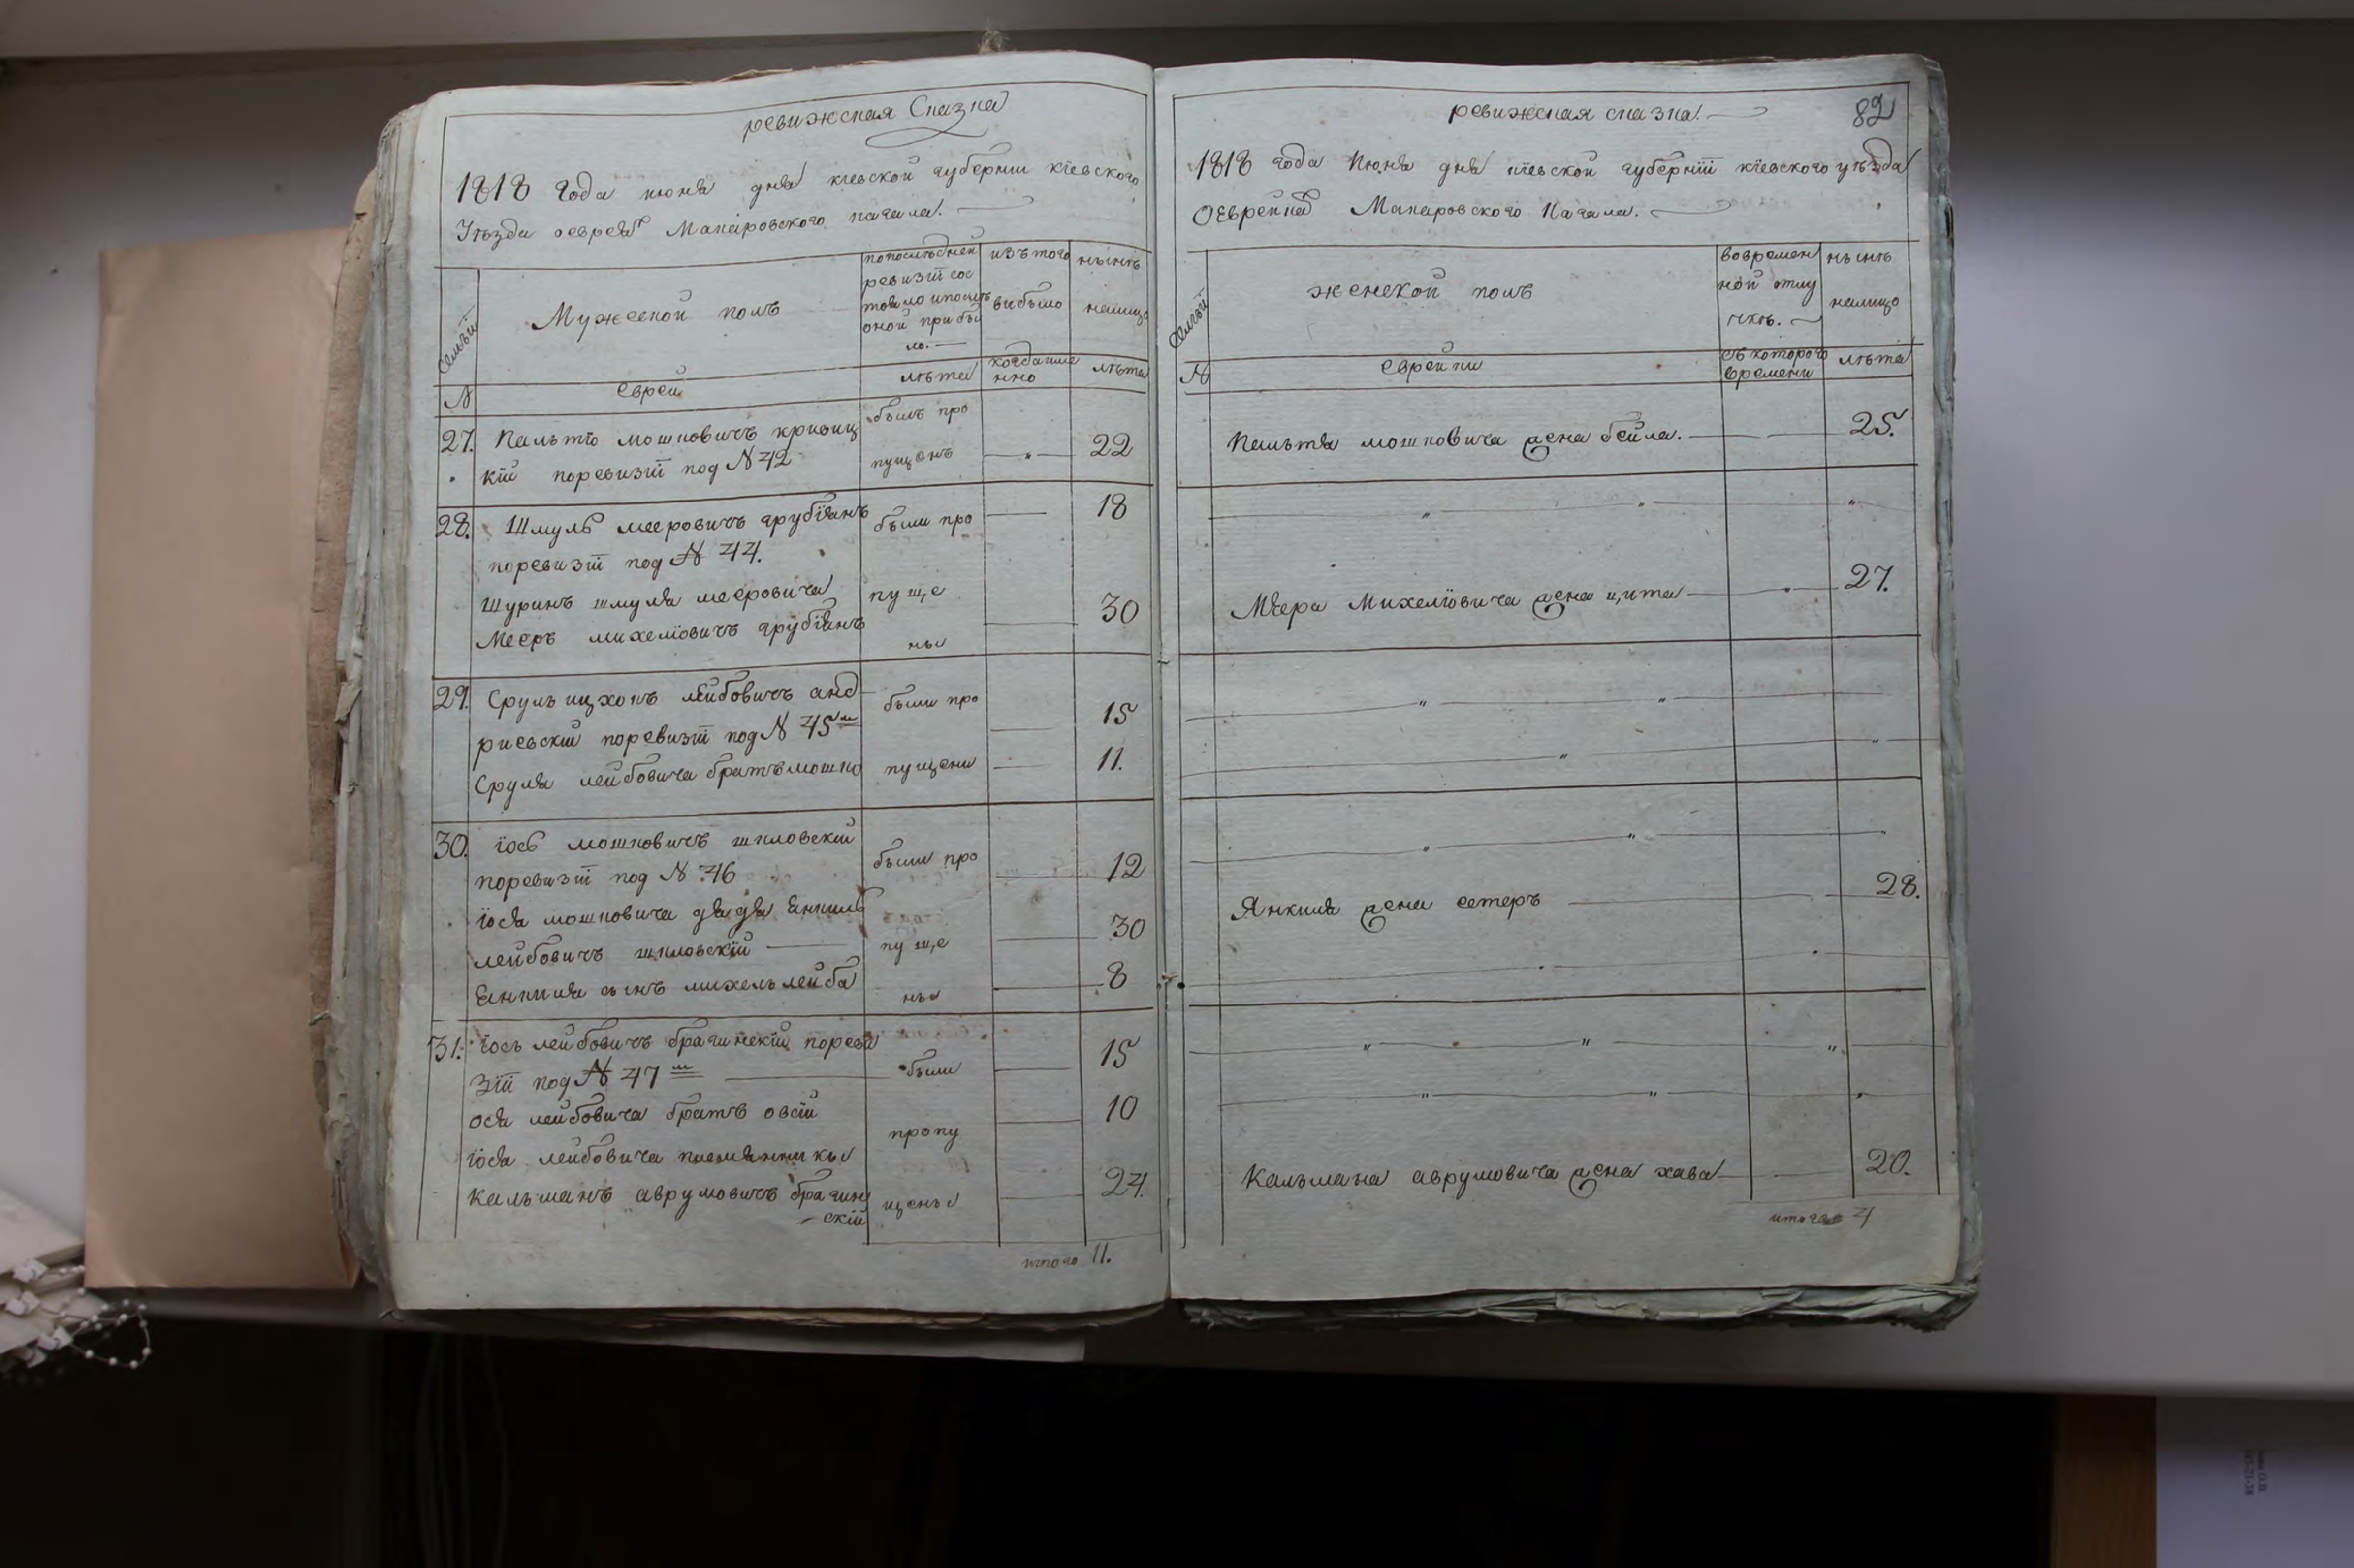 ревижская Сказка
1818 Года июня дня кіевской губерніи кіевского
Уѣзда оевреяхъ Макаровского кагала.
Семьи
Мужеской полъ
попослѣдней
ревизіи сос
тояло ипослѣ
оной прибы
ло.
изътого
выбыло
нынѣ
налицо
№
евреи
лѣта
когдаиме
нно
лѣта
27. Кальтю мошковичъ кривиц
кій поревизіи под № 42
былъ про
пущенъ
22
28. Шмуль мееровичъ грубіянъ
поревизіи под № 44.
были про
18
Шуринъ шмуля мееровича
Мееръ михеліовичъ грубіянъ
пуще
ны
30
29. Сруль ицхокъ лейбовичъ анд
риевскій поревизіи под № 45
были про
15
Сруля лейбовича братъ мошко
пущени
11.
30. іось мошковичъ шкловскій
поревизіи под № 46
были про
12
іося мошковича дядя Янкиль
лейбовичъ шкловскій
пуще
30
Янкиля сынъ михель лейба
ны
8
31. іось лейбовичъ брагинскій пореви
зіи под № 47
были
15
ося лейбовича братъ овсій
10
пропу
іося лейбовича племянникы
кальманъ аврумовичъ брагин
скій
щены
24.
итого 11.
ревижская сказка.
82
1818 года Июня дня кіевской губерніи кіевского уѣзда
Оеврейкахъ Макаровского Кагала.
Семьи
женской полъ
вовремен
ной отлу
чкѣ.
нынѣ
налицо
№
еврейки
съ которого
времени
лѣта
Кальтя мошковича жена бейла.
25.
Меера Михеліовича жена ципа
27.
Янкиля жена естеръ
28.
Кальмана аврумовича жена хава
20.
итого 4